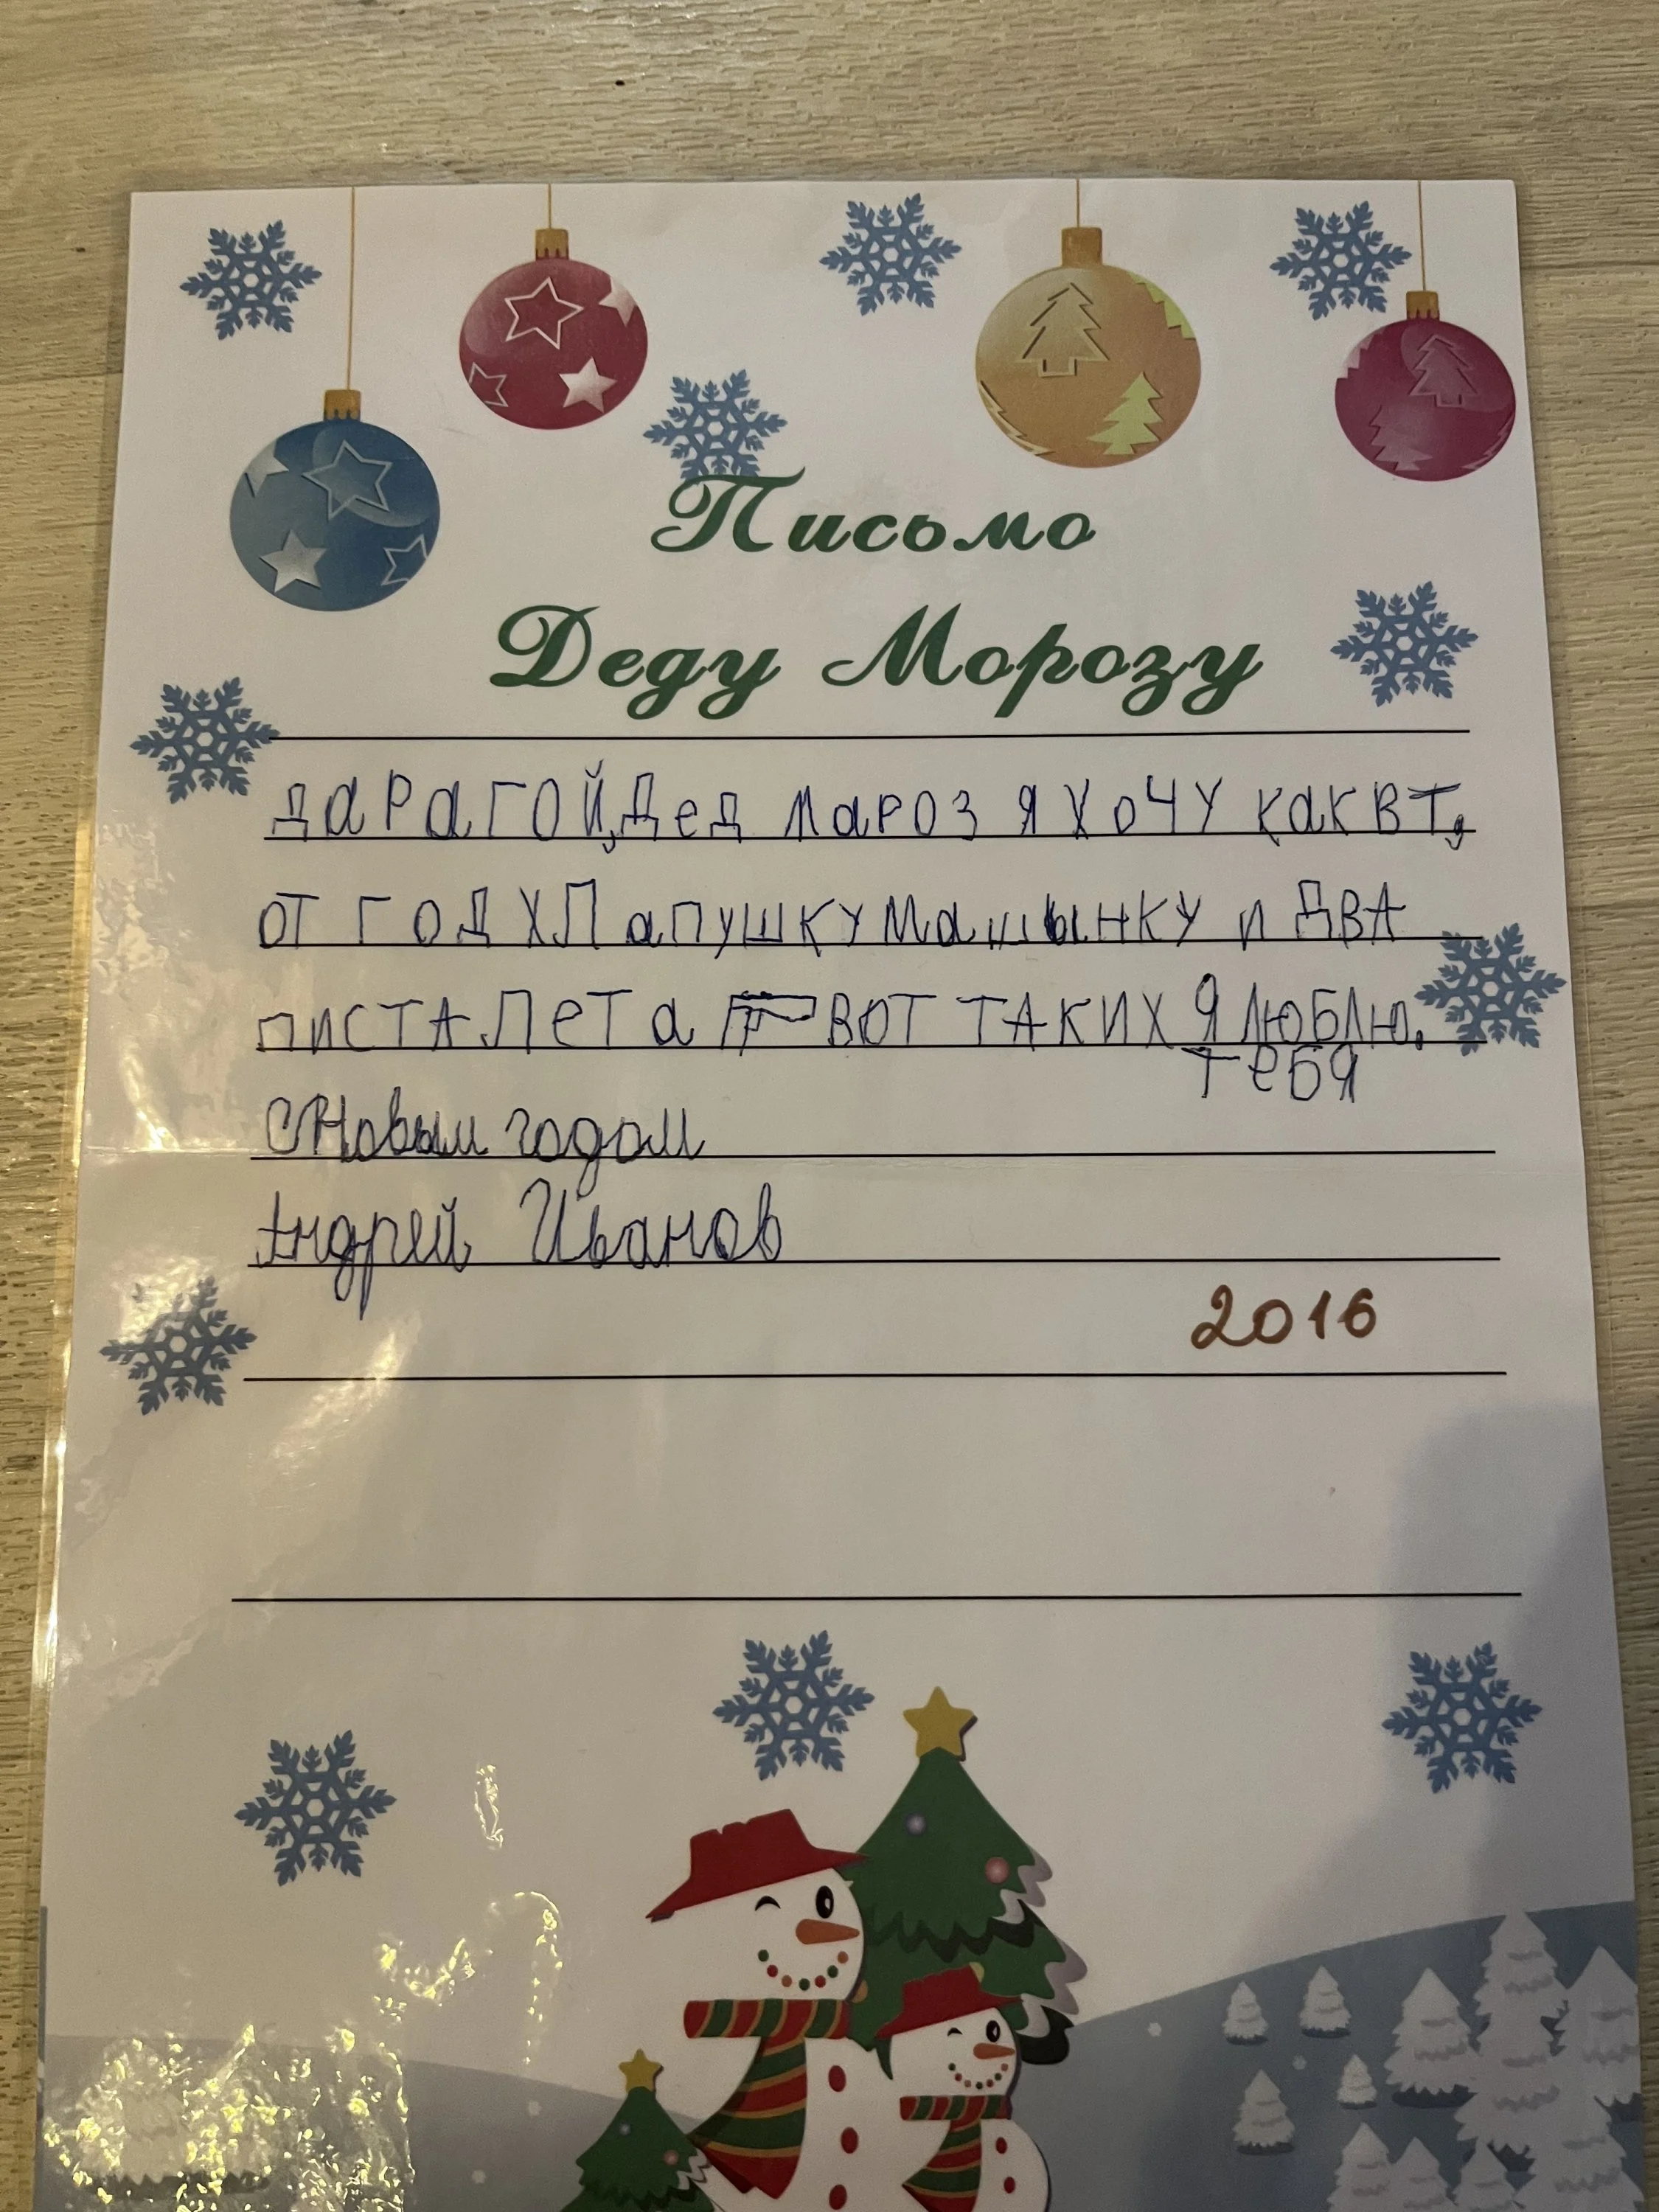 Письмо
Деду Морозу
ДАРАГОЙ, Дед МАРОЗ Я ХОЧУ КАК ВТ,
ОТ ГОД ХЛАПУШКУ МАШЫНКУ И ДВА
ПИСТАЛЕТА ВОТ ТАКИХ Я ЛЮБЛЮ.
ТЕБЯ
С Новым годом
Андрей Иванов
2016